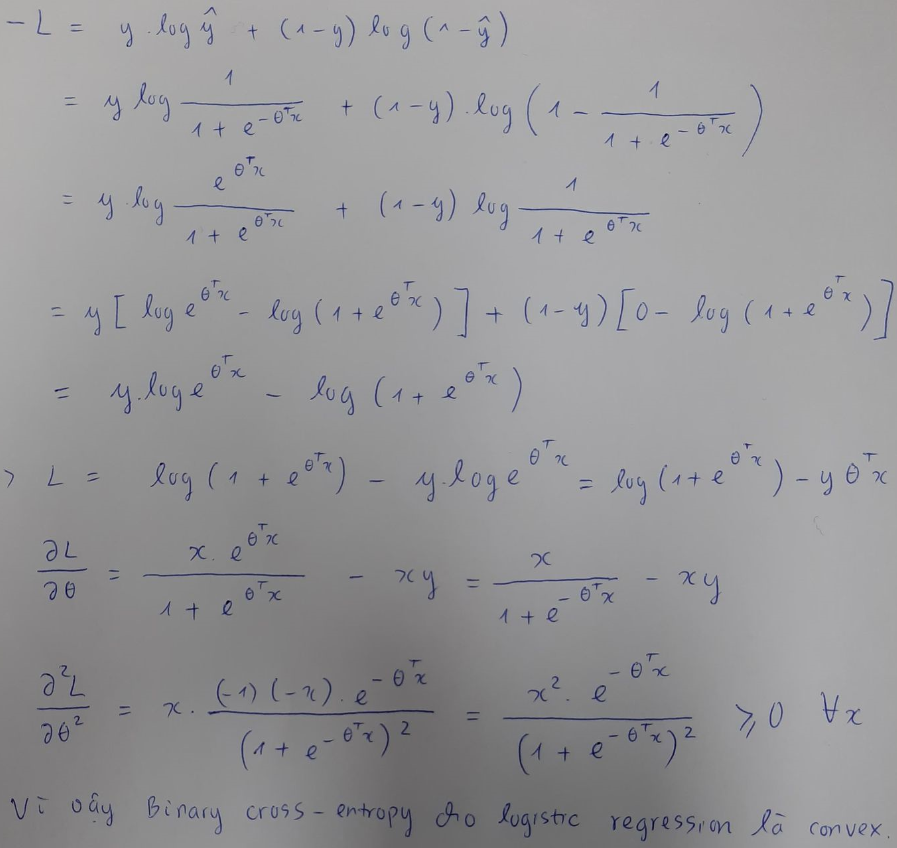 - L = y . log ŷ + (1-y) log (1 - ŷ)
= y log \frac{1}{1 + e^{-θ^T x}} + (1-y) . log ( 1 - \frac{1}{1 + e^{-θ^T x}} )
= y log \frac{e^{θ^T x}}{1 + e^{θ^T x}} + (1-y) log \frac{1}{1 + e^{θ^T x}}
= y [ log e^{θ^T x} - log ( 1 + e^{θ^T x} ) ] + (1-y) [ 0 - log ( 1 + e^{θ^T x} ) ]
= y . log e^{θ^T x} - log ( 1 + e^{θ^T x} )
> L = log ( 1 + e^{θ^T x} ) - y . log e^{θ^T x} = log ( 1 + e^{θ^T x} ) - y θ^T x
\frac{∂L}{∂θ} = \frac{x . e^{θ^T x}}{1 + e^{θ^T x}} - xy = \frac{x}{1 + e^{-θ^T x}} - xy
\frac{∂²L}{∂θ²} = x . \frac{(-1) (-x) . e^{-θ^T x}}{( 1 + e^{-θ^T x} )²} = \frac{x² . e^{-θ^T x}}{( 1 + e^{-θ^T x} )²} ⩾ 0 ∀x
Vì vậy Binary cross-entropy cho logistic regression là convex.